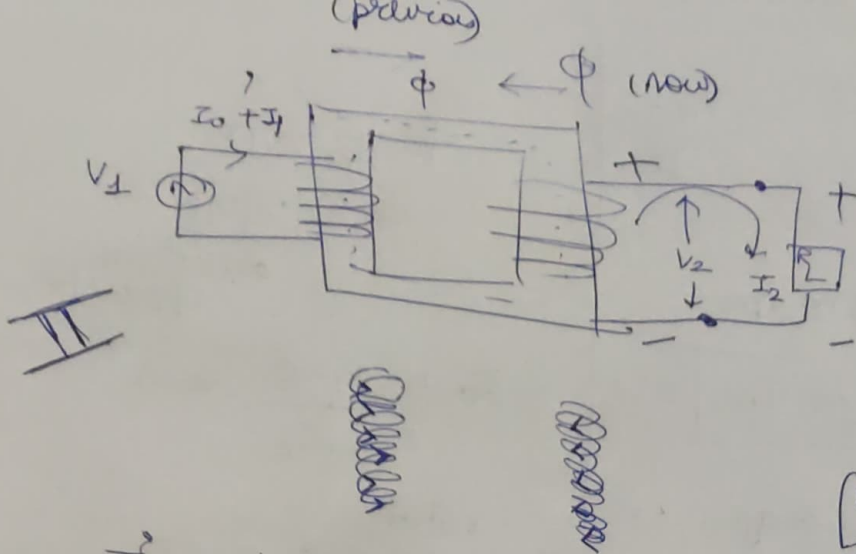 (previous)
ϕ
ϕ (now)
I₀ + I₁'
V₁
+
+
V₂
I₂
L
-
-
II